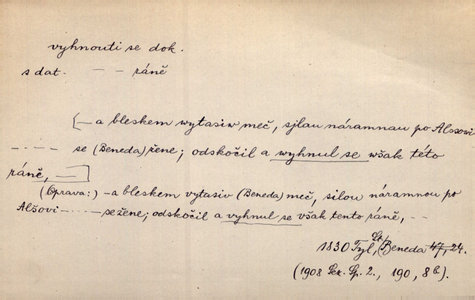 vyhnouti se dok.
s dat. – – ráně
[– a bleskem wytasiw meč, sjlau náramnau po Alšowi
– · – · – se (Beneda) žene; odskočil a wyhnul se wšak této
ráně, – – ]
(Oprava:) – a bleskem vytasiv (Beneda) meč, silou náramnou po
Alšovi – · – – se žene; odskočil a vyhnul se však tento ráně, – –
1830 Tyl, Beneda 47, 24.
(1908 Lp. 2., 190, 8b).